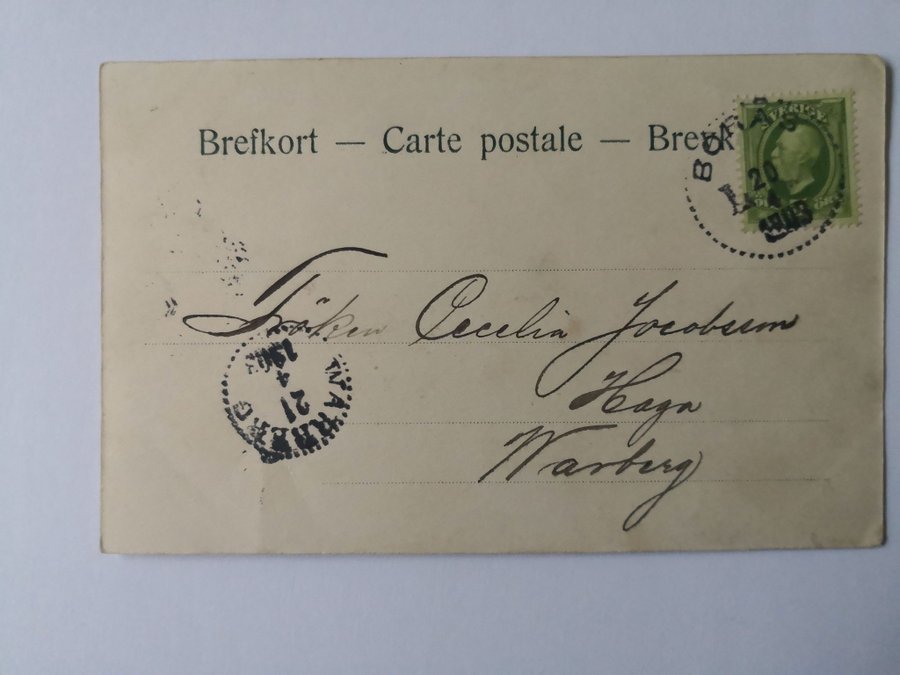 Brefkort — Carte postale — Brevk
SVERIGE
BORÅS
20
4
1903
Fröken Cecelia Jacobsson
Haga
Warberg
WARBERG
21
4
1903